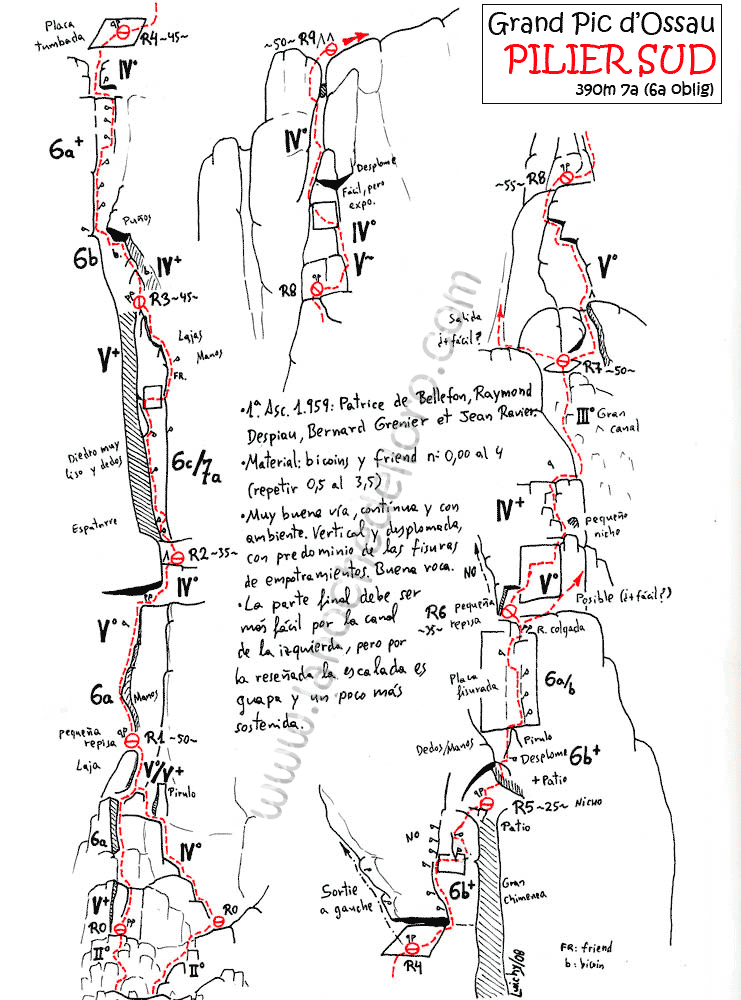 Grand Pic d'Ossau
PILIER SUD
390m 7a (6a oblig)
Placa
tumbada
R4 ~45~
IVº
6a+
Puños
6b
b.
b.
IV+
R3 ~45~
V+
Lajas
Manos
FR.
Diedro muy
liso y dedos
6c/7a
Espatarre
R2 ~35~
IVº
Vº
6a
Manos
pequeña
repisa
R1 ~50~
Laja
Vº/V+
Pirulo
6a
IVº
V+
R0
R0
IIº
IIº
~50~ R9
IVº
Desplome
Fácil, pero
expo.
IVº
V~
R8
~55~ R8
Vº
Salida
¿+fácil?
R7 ~50~
IIIº
Gran
canal
IV+
pequeño
nicho
NO
Vº
Posible (¿+fácil?)
R6
pequeña
repisa
~35~
R. colgada
Placa
fisurada
6a/b
Dedos/Manos
Pirulo
Desplome
6b+
+ Patio
R5 ~25~ Nicho
Patio
NO
6b+
Gran
chimenea
Sortie
a gauche
R4
•1ª Asc. 1.959: Patrice de Bellefon, Raymond
Despiau, Bernard Grenier et Jean Ravier.
•Material: bicoins y friend nº 0,00 al 4
(repetir 0,5 al 3,5)
•Muy buena vía, contínua y con
ambiente. Vertical y desplomada,
con predominio de las fisuras
de empotramientos. Buena roca.
•La parte final debe ser
más fácil por la canal
de la izquierda, pero por
la reseñada la escalada es
guapa y un poco más
sostenida.
FR: friend
b: bicoin
Luichy/08